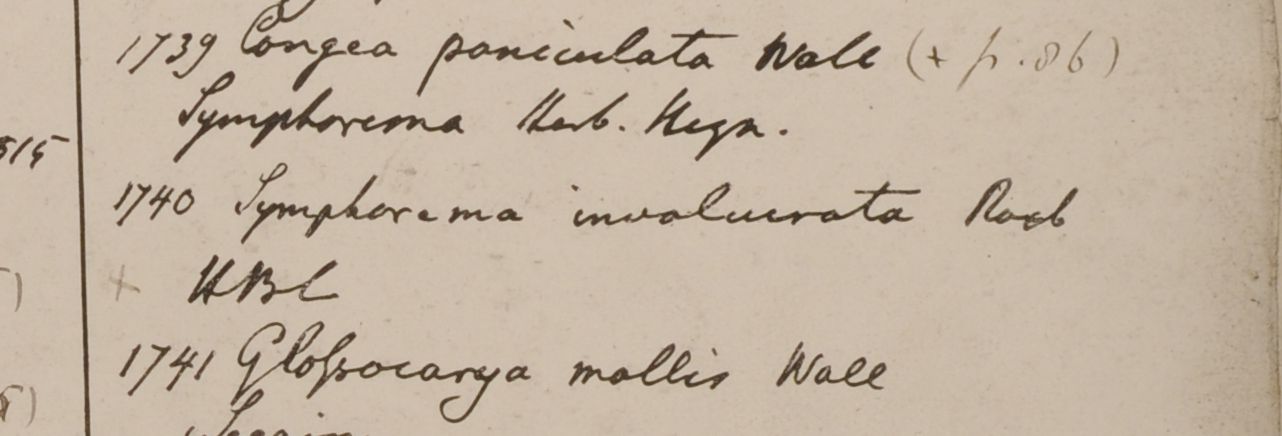 1739 Congea paniculata Wall (+ p. 86)
Symphorema Herb. Heyn.
515
1740 Symphorema involucrata Roxb
+ HBC
1741 Glossocarya mollis Wall